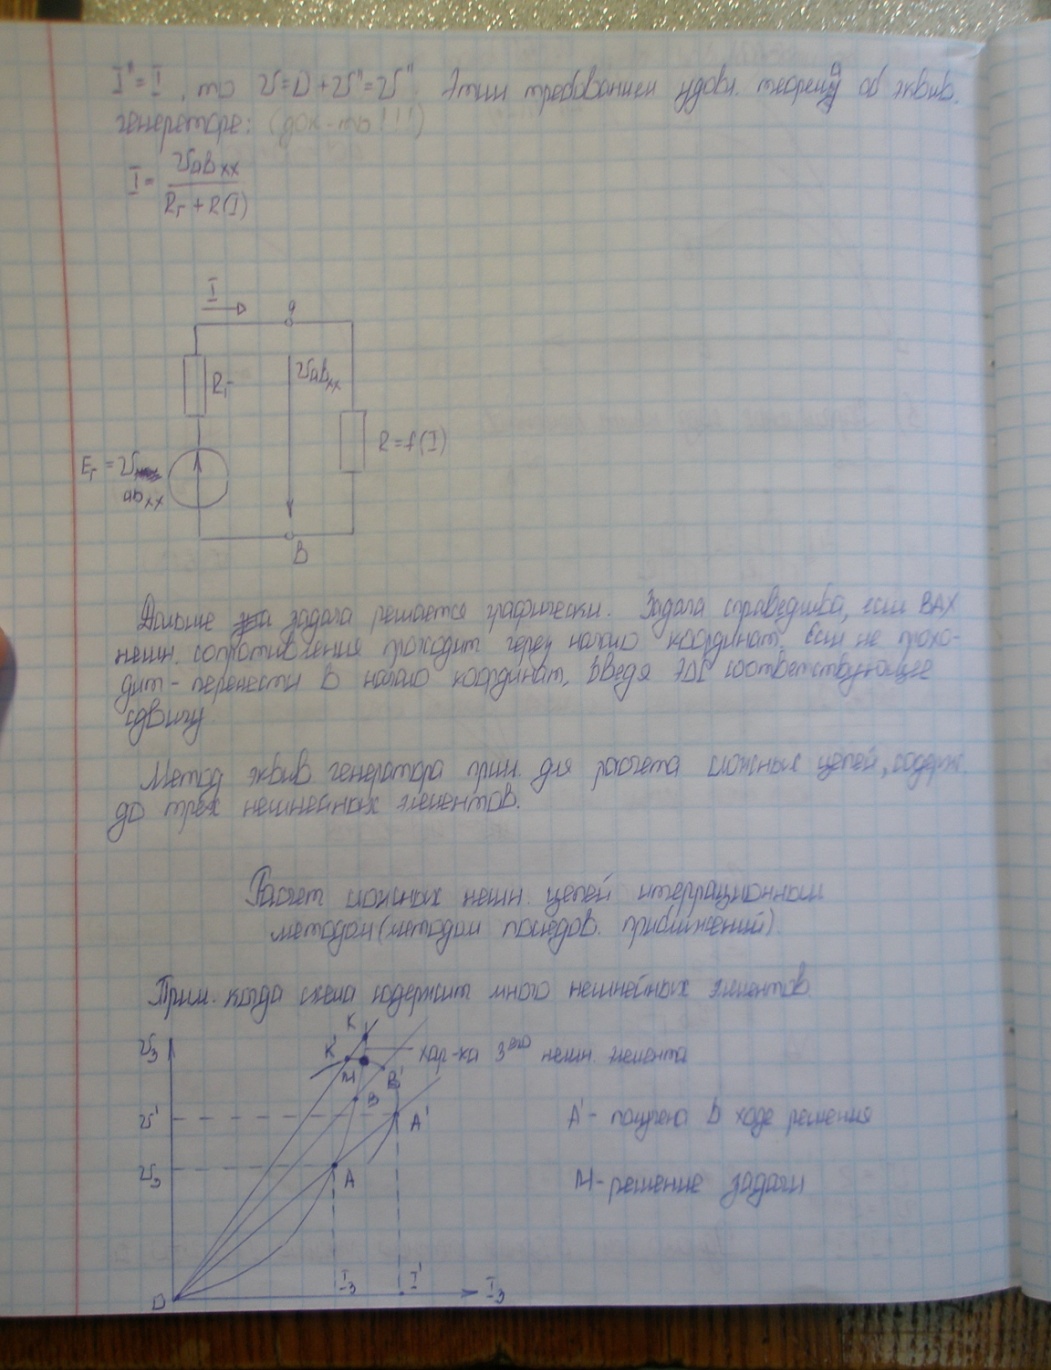 I"=I, то U=0+U"=U". Этим требованиям удовл. теорема об эквив.
генераторе: (док-ть!!!)
I = Uab хх / (Rг + R(I))
I
a
Rг
Uab хх
R=f(I)
Eг = U
ab хх
B
Дальше задача решается графически. Задача справедлива, если ВАХ
нелин. сопротивления проходит через начало координат. Если не прохо-
дит - перенести в начало координат, введя ЭДС соответствующее
сдвигу
Метод эквив генератора прим. для расчета сложных цепей, содерж.
до трех нелинейных элементов.
Расчет сложных нелин. цепей итеррационным
методом (методом последов. приближений).
Прим. когда схема содержит много нелинейных элементов
U3
K
K'
хар-ка 3его нелин. элемента
M
B'
B
U'
A'
A' - получено в ходе решения
U3
A
M - решение задачи
0
I3
I'
I3